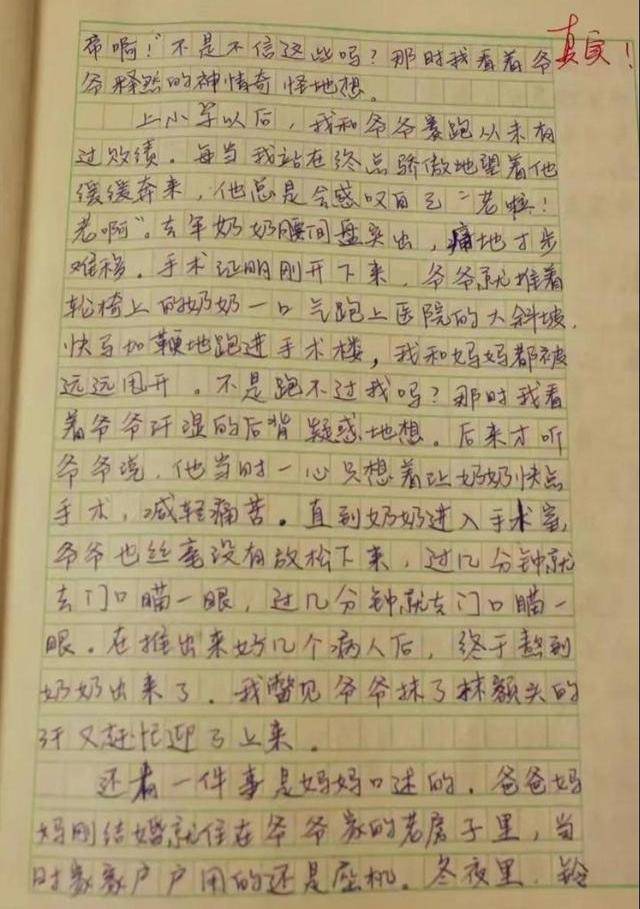 帝啊！”不是不信这些吗？那时我看着爷
真实！
爷释然的神情奇怪地想。
上小学以后，我和爷爷赛跑从未有
过败绩。每当我站在终点骄傲地望着他
缓缓奔来，他总是会感叹自己“老啦！
老啊”。去年奶奶腰间盘突出，痛地寸步
难移。手术证明刚开下来，爷爷就推着
轮椅上的奶奶一口气跑上医院的大斜坡，
快马加鞭地跑进手术楼，我和妈妈都被
远远甩开。不是跑不过我吗？那时我看
着爷爷汗湿的后背疑惑地想。后来才听
爷爷说，他当时一心只想着让奶奶快点
手术，减轻痛苦。直到奶奶进入手术室，
爷爷也丝毫没有放松下来，过几分钟就
去门口瞄一眼，过几分钟就去门口瞄一
眼。在推出来好几个病人后，终于熬到
奶奶出来了。我瞥见爷爷抹了抹额头的
汗又赶忙迎了上来。
还有一件事是妈妈口述的。爸爸妈
妈刚结婚就住在爷爷家的老房子里，当
时家家户户用的还是座机。冬夜里，铃